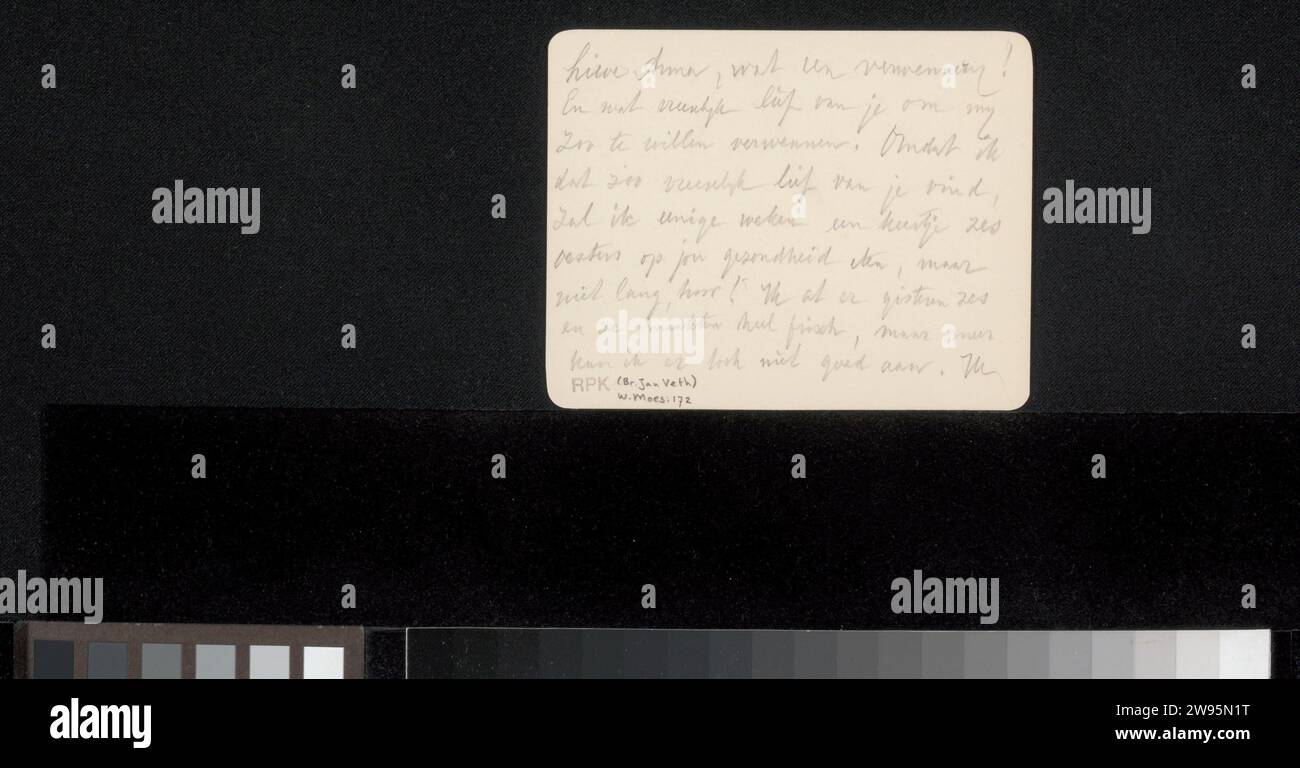 Lieve Anna, wat een verwenning!
En wat vreeselijk lief van je om mij
Zoo te willen verwennen. Omdat ik
dat zoo vreeselijk lief van je vind,
Zal ik eenige weken een keertje zes
oesters op jou gezondheid eten, maar
niet lang, hoor! Ik at er gisteren zes
en ze smaakten heel frisch, maar meer
kan ik er toch niet goed aan. Ik
RPK (Br. Jan Veth)
W. Moes: 172
alamy
alamy
alamy
alamy
alamy
alamy
Image ID: 2W95N1T
www.alamy.com